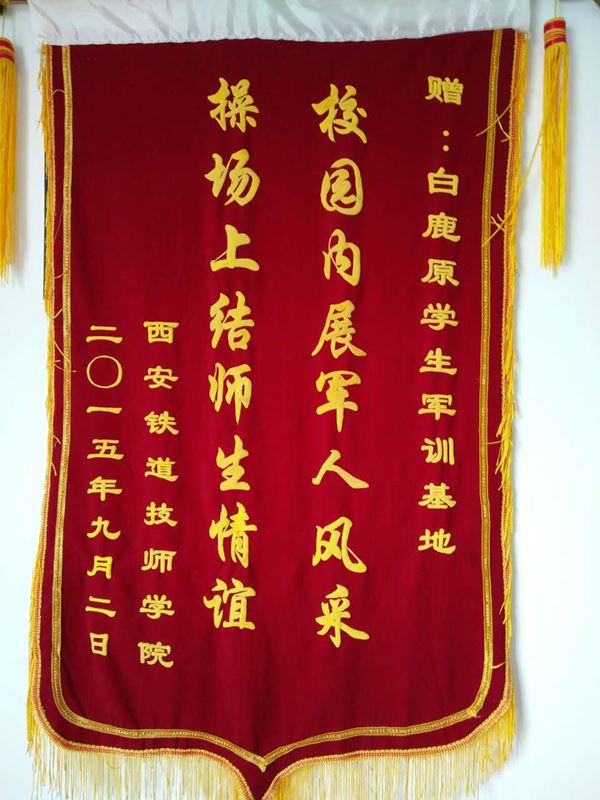 赠：白鹿原学生军训基地
校园内展军人风采
操场上结师生情谊
西安铁道技师学院
二〇一五年九月二日